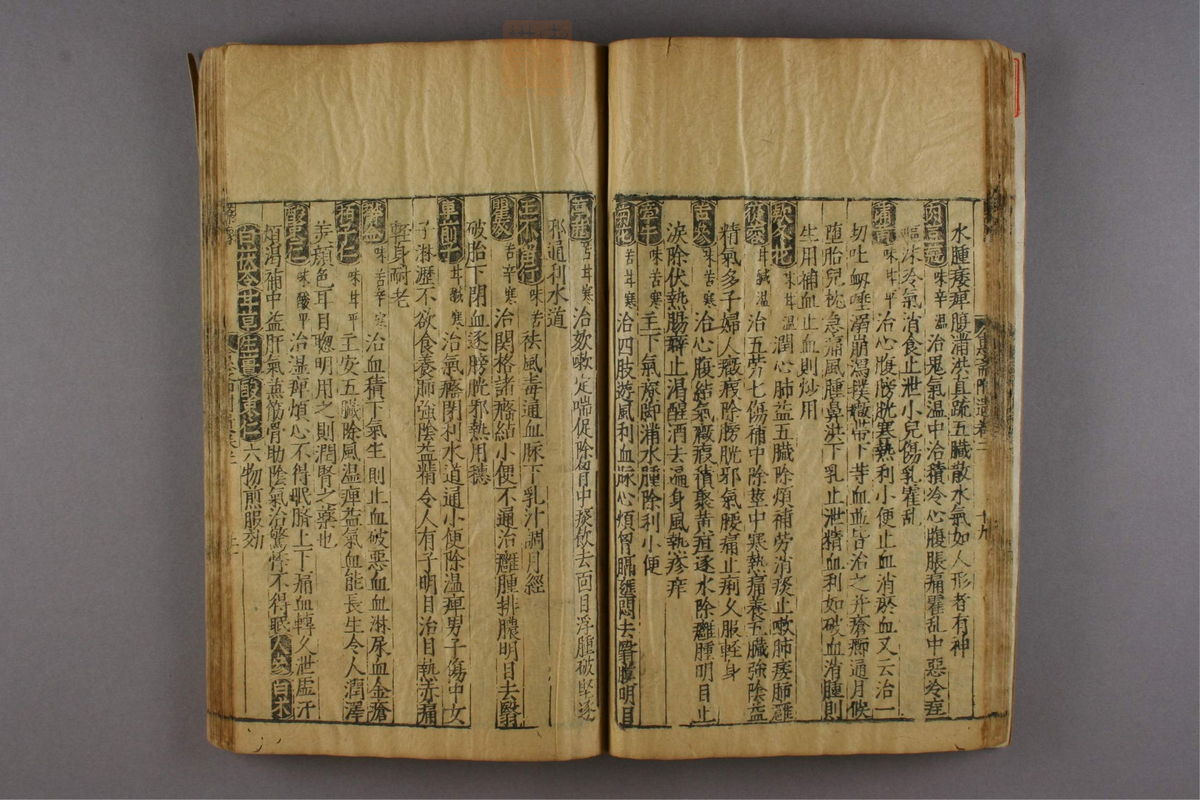 水腫痿痺腹滿洪直疏五臟散水氣如人形者有神
肉豆蔻味辛温治鬼氣温中治積冷心腹脹痛霍乱中惡冷疰
嘔沫冷氣消食止泄小兒傷乳霍乱
蒲黄味甘平治心腹膀胱寒熱利小便止血消瘀血又云治一
切吐衂唾溺崩瀉撲癥帶下等血並皆治之并瘡癤通月候
堕胎兒枕急痛風腫鼻洪下乳止泄精血利如破血消腫則
生用補血止血則炒用
款冬花味甘温潤心肺益五臟除煩補劳消痰止嗽肺痿肺癰
從蓉甘鹹温治五劳七傷補中除莖中寒熱痛養五臟強陰益
精氣多子婦人癥瘕除膀胱邪氣腰痛止痢久服軽身
苦參味苦寒治心腹結氣癥瘕積聚黄疸逐水除癰腫明目止
淚除伏熱腸澼止渴醒酒去遍身風熱疹痒
牽牛味苦寒主下氣療脚滿水腫除利小便
菊花苦甘寒治四肢遊風利血脉心煩胷膈壅悶去翳膜明目
葶藶苦甘寒治欬嗽定喘促除胷中痰飲去面目浮腫破堅逐
邪通利水道
王不留行味苦祛風毒通血脉下乳汁調月經
瞿麥苦辛寒治関格諸癃結小便不通治癰腫排膿明目去翳
破胎下閉血逐膀胱邪熱用穗
車前子甘鹹寒治氣癃閉利水道通小便除温痺男子傷中女
子淋瀝不欲食養肺強陰益精令人有子明目治目熱赤痛
軽身耐老
味苦辛寒治血積下氣生則止血破惡血血淋尿血金瘡
栢子仁味甘平主安五臟除風温痺益氣血能長生令人潤澤
美顔色耳目聰明用之則潤腎之藥也
酸棗仁味酸平治湿痺煩心不得眠臍上下痛血轉久泄虚汗
煩渴補中益肝氣堅筋骨助陰氣治驚悸不得眠人參白木
白茯苓甘草生薑酸棗仁六物煎服効